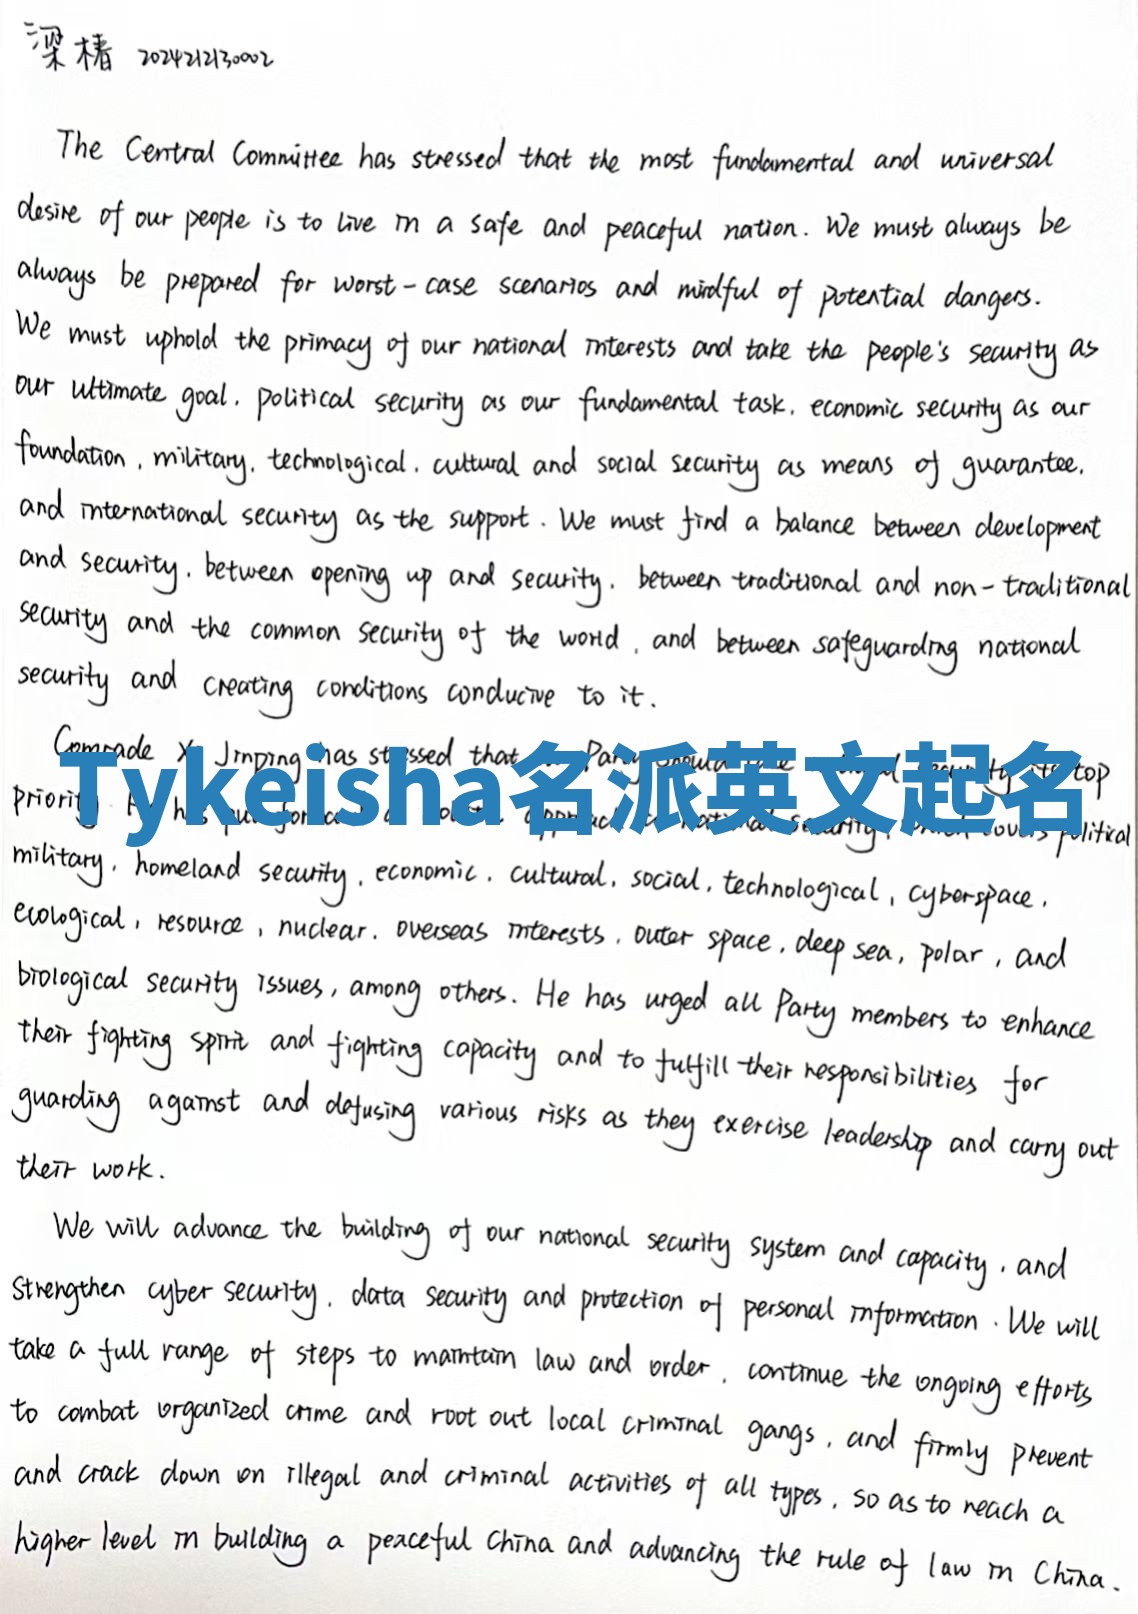 梁椿 2024212130002
The Central Committee has stressed that the most fundamental and universal
desire of our people is to live in a safe and peaceful nation. We must always be
always be prepared for worst-case scenarios and mindful of potential dangers.
We must uphold the primacy of our national interests and take the people's security as
our ultimate goal, political security as our fundamental task, economic security as our
foundation, military, technological, cultural and social security as means of guarantee,
and international security as the support. We must find a balance between development
and security, between opening up and security, between traditional and non-traditional
security and the common security of the world, and between safeguarding national
security and creating conditions conducive to it.
Comrade Xi Jinping has stressed that Party should top
Tykeisha名派英文起名
priority. He has put forward a approach national security, which covers political
military, homeland security, economic, cultural, social, technological, cyberspace,
ecological, resource, nuclear, overseas interests, outer space, deep sea, polar, and
biological security issues, among others. He has urged all Party members to enhance
their fighting spirit and fighting capacity and to fulfill their responsibilities for
guarding against and defusing various risks as they exercise leadership and carry out
their work.
We will advance the building of our national security system and capacity, and
strengthen cyber security, data security and protection of personal information. We will
take a full range of steps to maintain law and order, continue the ongoing efforts
to combat organized crime and root out local criminal gangs, and firmly prevent
and crack down on illegal and criminal activities of all types, so as to reach a
higher level in building a peaceful China and advancing the rule of law in China.